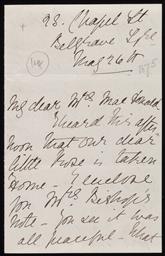 23. Chapel St
Belgrave Sqre
May 26th
My dear Mrs. Mac Donald
I heard this after
noon that our dear
little Rose is taken
Home - I enclose
you Mrs. Bishop's
note - You see it was
all peaceful - that